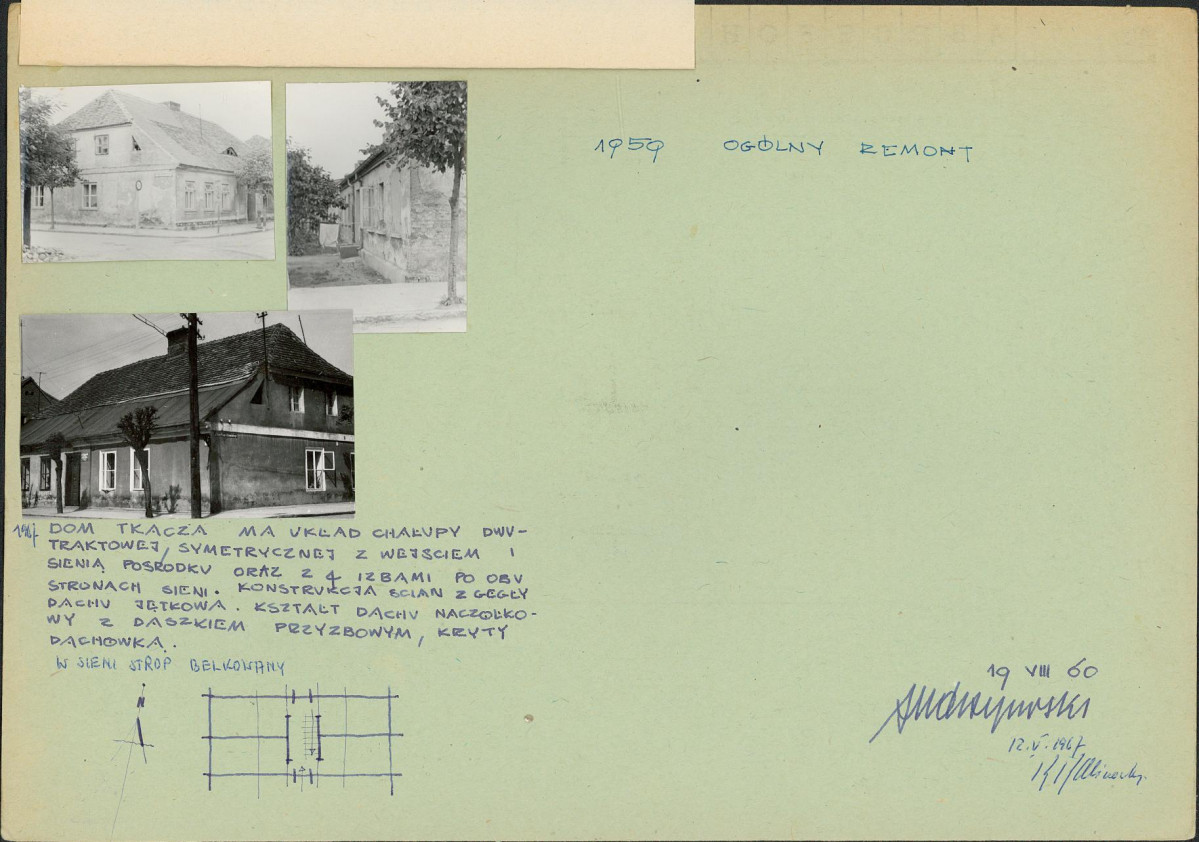 1959 OGÓLNY REMONT
1967 DOM TKACZA MA UKŁAD CHAŁUPY DWU-
TRAKTOWEJ, SYMETRYCZNEJ Z WEJŚCIEM I
SIENIĄ POŚRODKU ORAZ Z 4 IZBAMI PO OBU
STRONACH SIENI. KONSTRUKCJA ŚCIAN Z CEGŁY
DACHU JĘTKOWA. KSZTAŁT DACHU NACZÓŁKO-
WY Z DASZKIEM PRZYZBOWYM, KRYTY
DACHÓWKĄ.
W SIENI STROP BELKOWANY
N
19 VIII 60
12.V.1967